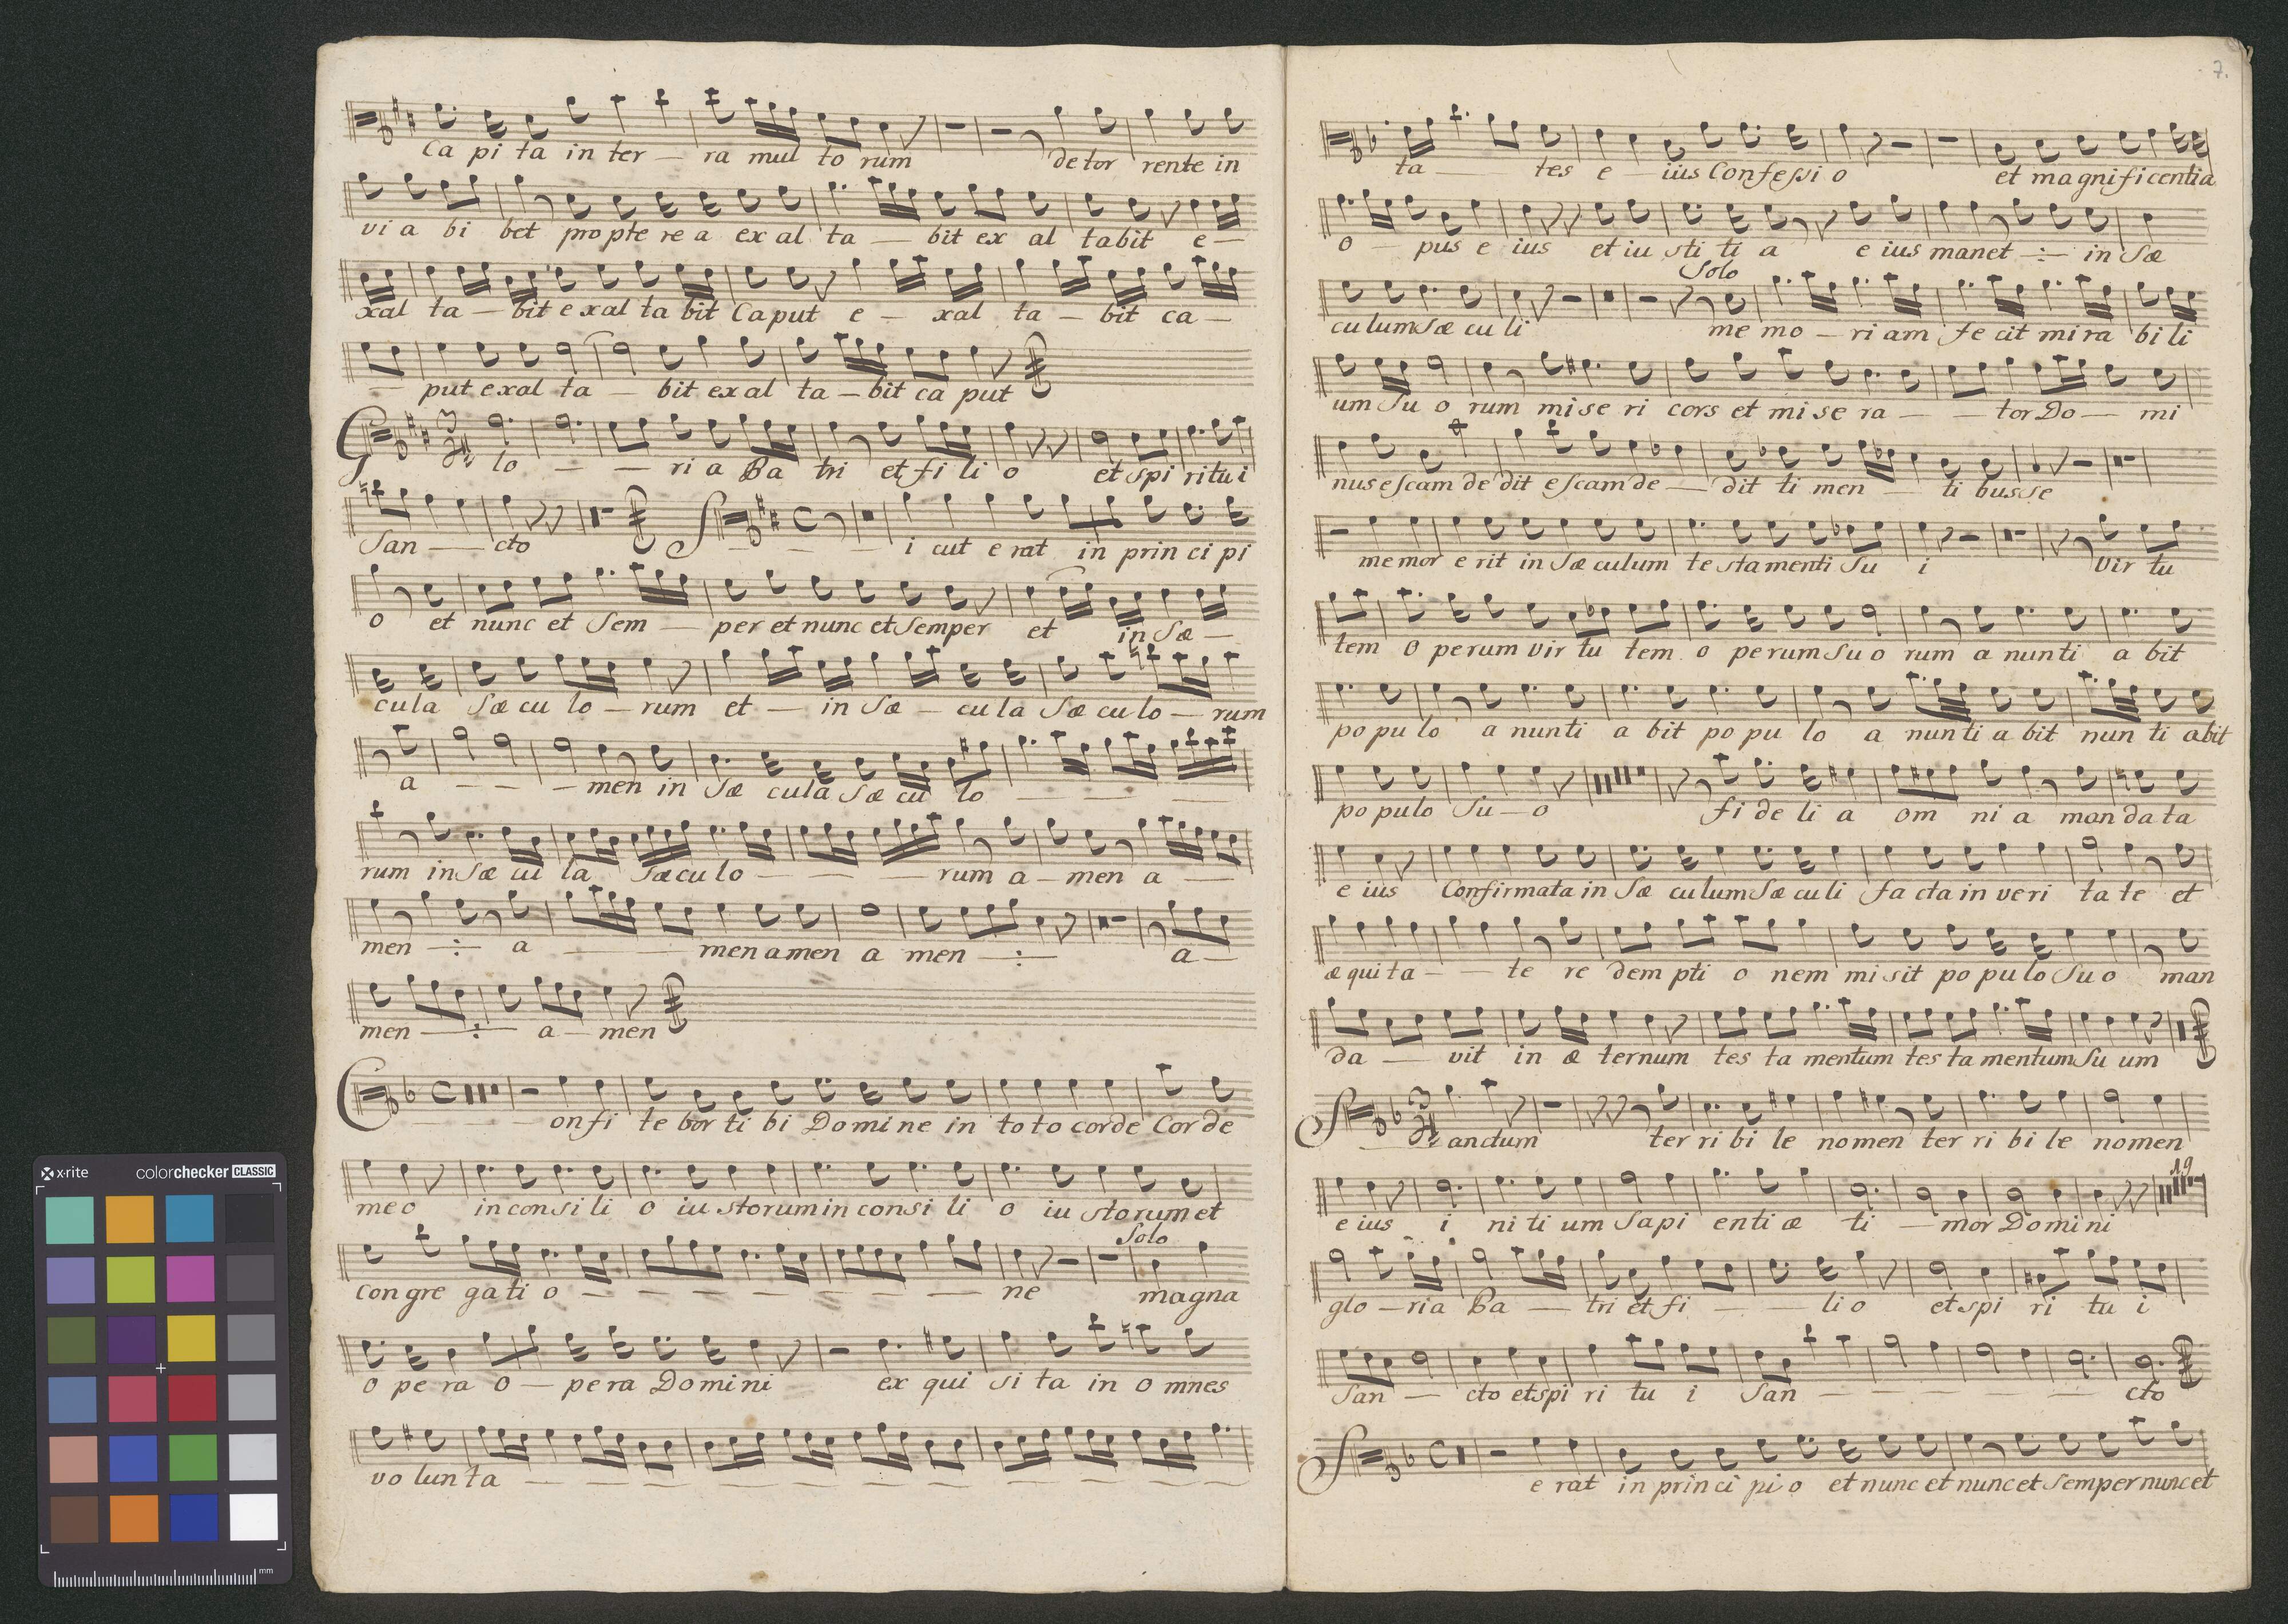 Ca pi ta in ter — ra mul to rum de tor rente in
vi a bi bet propte re a ex al ta — bit ex al tabit e —
xal ta — bit e xal ta bit Caput e — xal ta — bit ca —
— put exal ta — bit exal ta — bit ca put
Glo — — ri a Pa tri et fi li o et spi ritui
San — cto Si cut e rat in prin ci pi
o et nunc et Sem — per et nunc et Semper et in Sæ —
cula Sæ cu lo — rum et — in Sæ — cu la Sæ cu lo — rum
a — — — men in Sæ cula Sæ cu lo — — —
rum in Sæ cu la Sæcu lo — — — rum a — men a —
men —:— a — — — men amen a men —:— a —
men —:— a — men
Confi te bor ti bi Domine in toto corde Corde
meo in consili o iu storum in consi li o iu storum et
Solo
con gre ga ti o — — — — — — — ne magna
o pe ra o — pera Domini ex qui si ta in o mnes
vo lun ta — — — — — — — — — —
7.
ta — tes e — ius Confessi o et magnificentia
o — pus e ius et iu sti ti a e ius manet —:— in Sæ
Solo
culum Sæ cu li me mo — ri am fe cit mi ra bi li
um Su o rum mi se ri cors et mi se ra — — tor Do — mi
nus escam de dit escam de — dit ti men — ti bus se
me mor e rit in Sæ culum te stamenti Su i vir tu
tem o perum vir tu tem o pe rum Su o rum a nun ti a bit
po pu lo a nun ti a bit po pu lo a nun ti a bit nun ti abit
po pulo Su — o fi de li a om ni a man da ta
e ius Confirmata in Sæ culum Sæ culi fa cta in ve ri ta te et
æ qui ta — — te re dem pti o nem mi sit po pu lo Su o man
da — vit in æ ternum tes ta mentum tes ta mentum Su um
Sanctum ter ri bi le nomen ter ri bi le nomen
19
e ius i ni ti um Sapi enti æ ti — mor Domini
glo — ria Pa — tri et fi — — li o et spi ri tu i
San — cto et spi ri tu i San — — — — — cto
S e rat in princi pi o et nunc et nunc et Semper nunc et